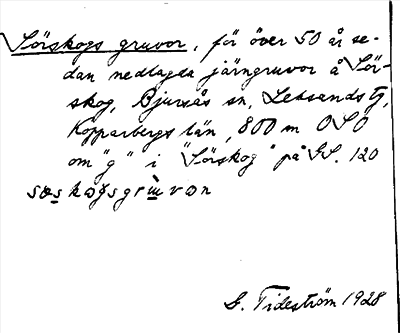 Sörskogs gruvor, för över 50 år se-
dan nedlagda järngruvor å Sör-
skog, Bjursås sn, Leksands tg,
Kopparbergs län, 800 m OSO
om "g" i "Sörskog" på GS. 120
G. Tideström 1928